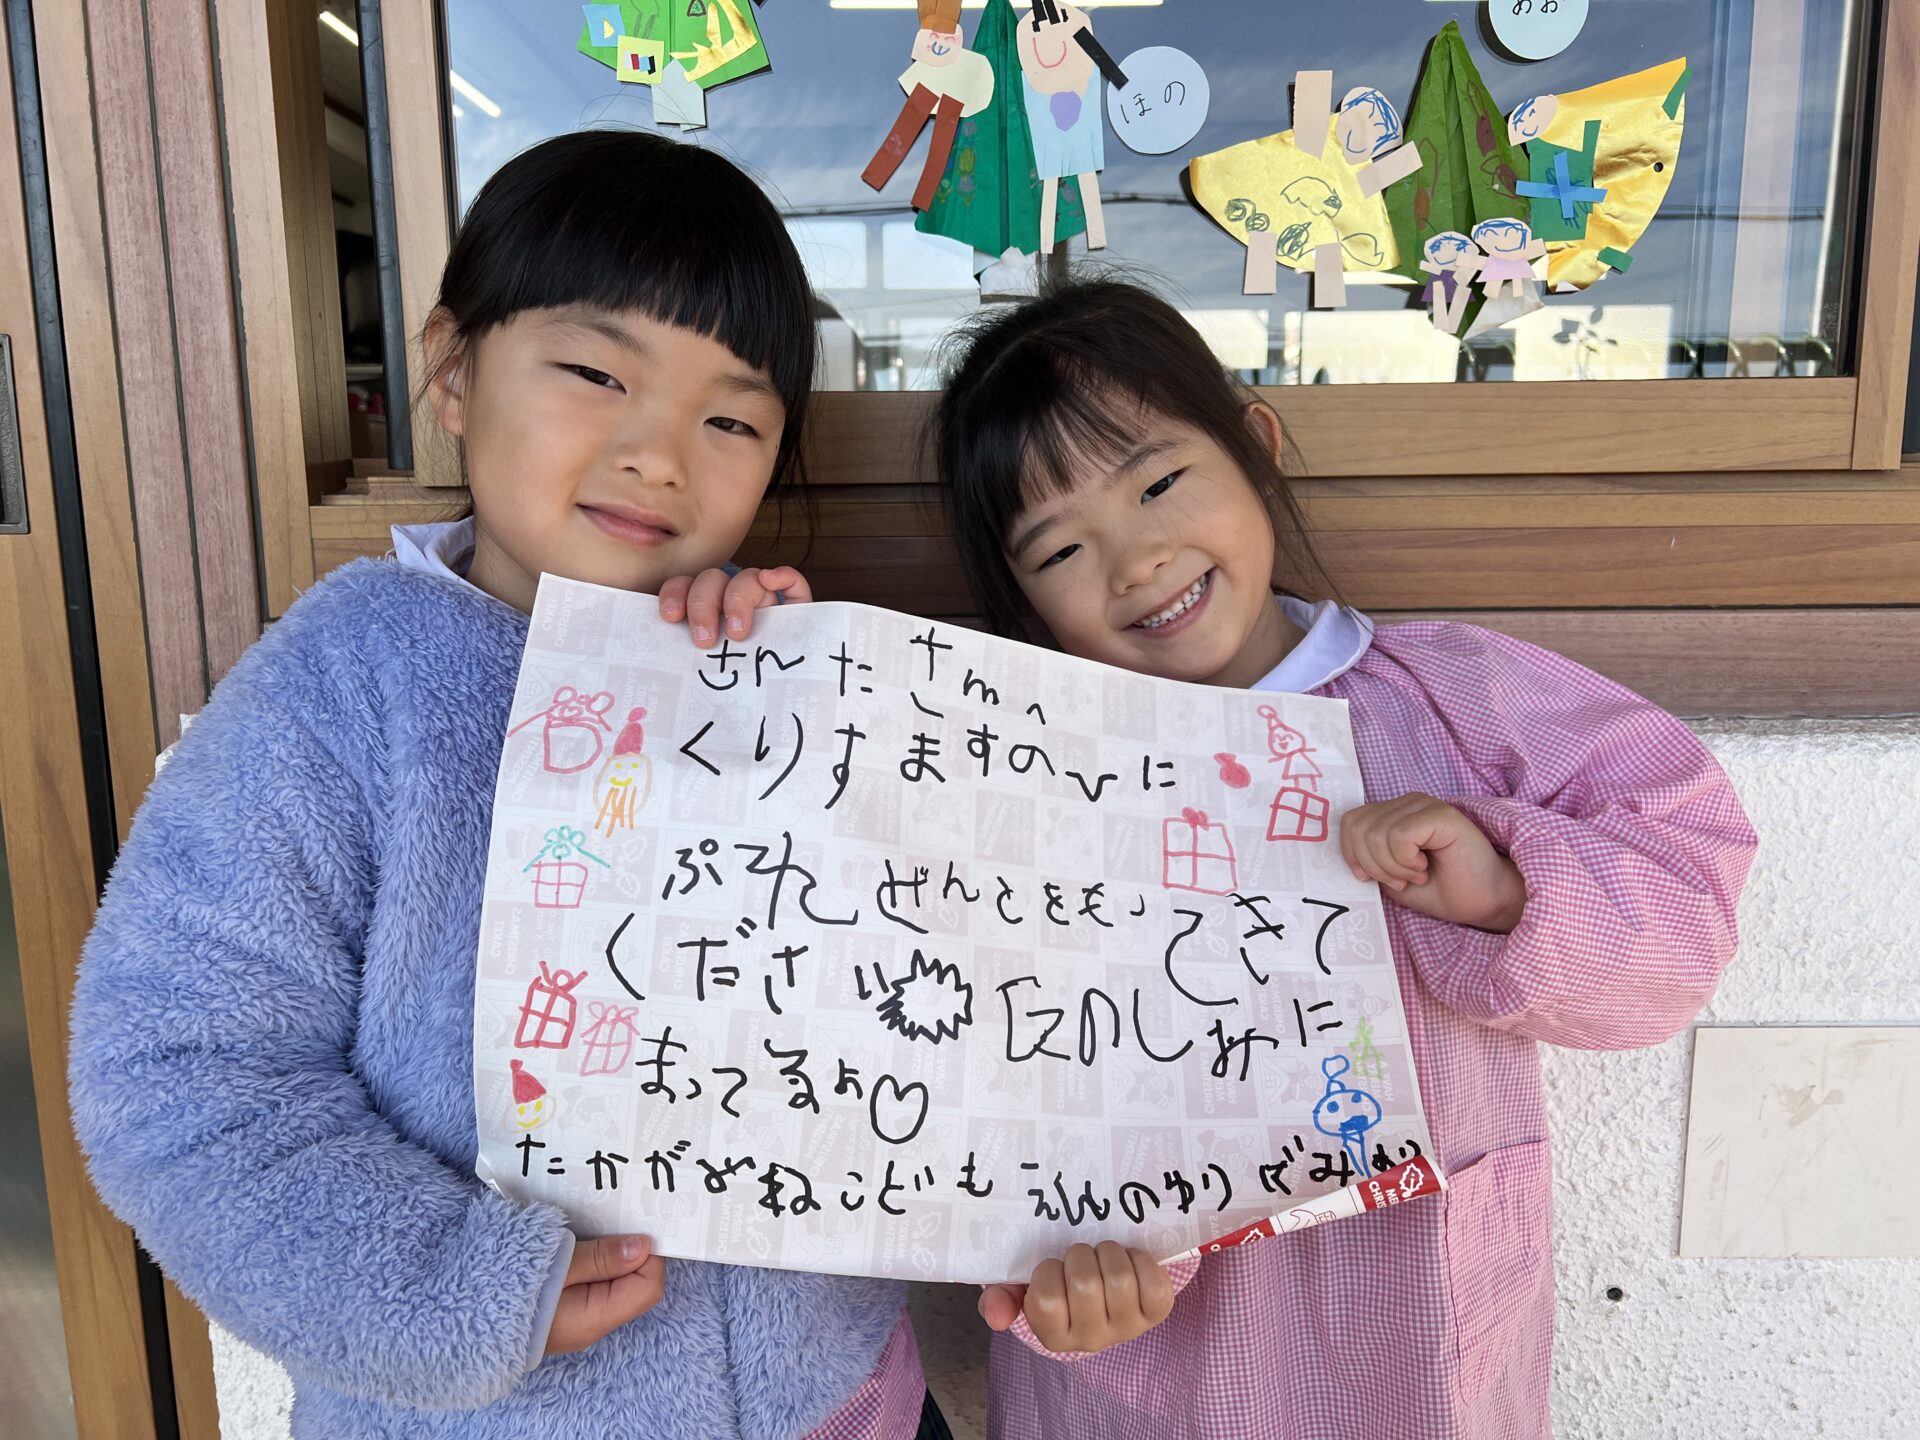 ほの
めお
さんたさんへ
くりすますのひに
ぷれぜんとをもってきて
ください
たのしみに
まってるよ♡
こどもえんのゆりぐみより
MERRY CHRISTMAS